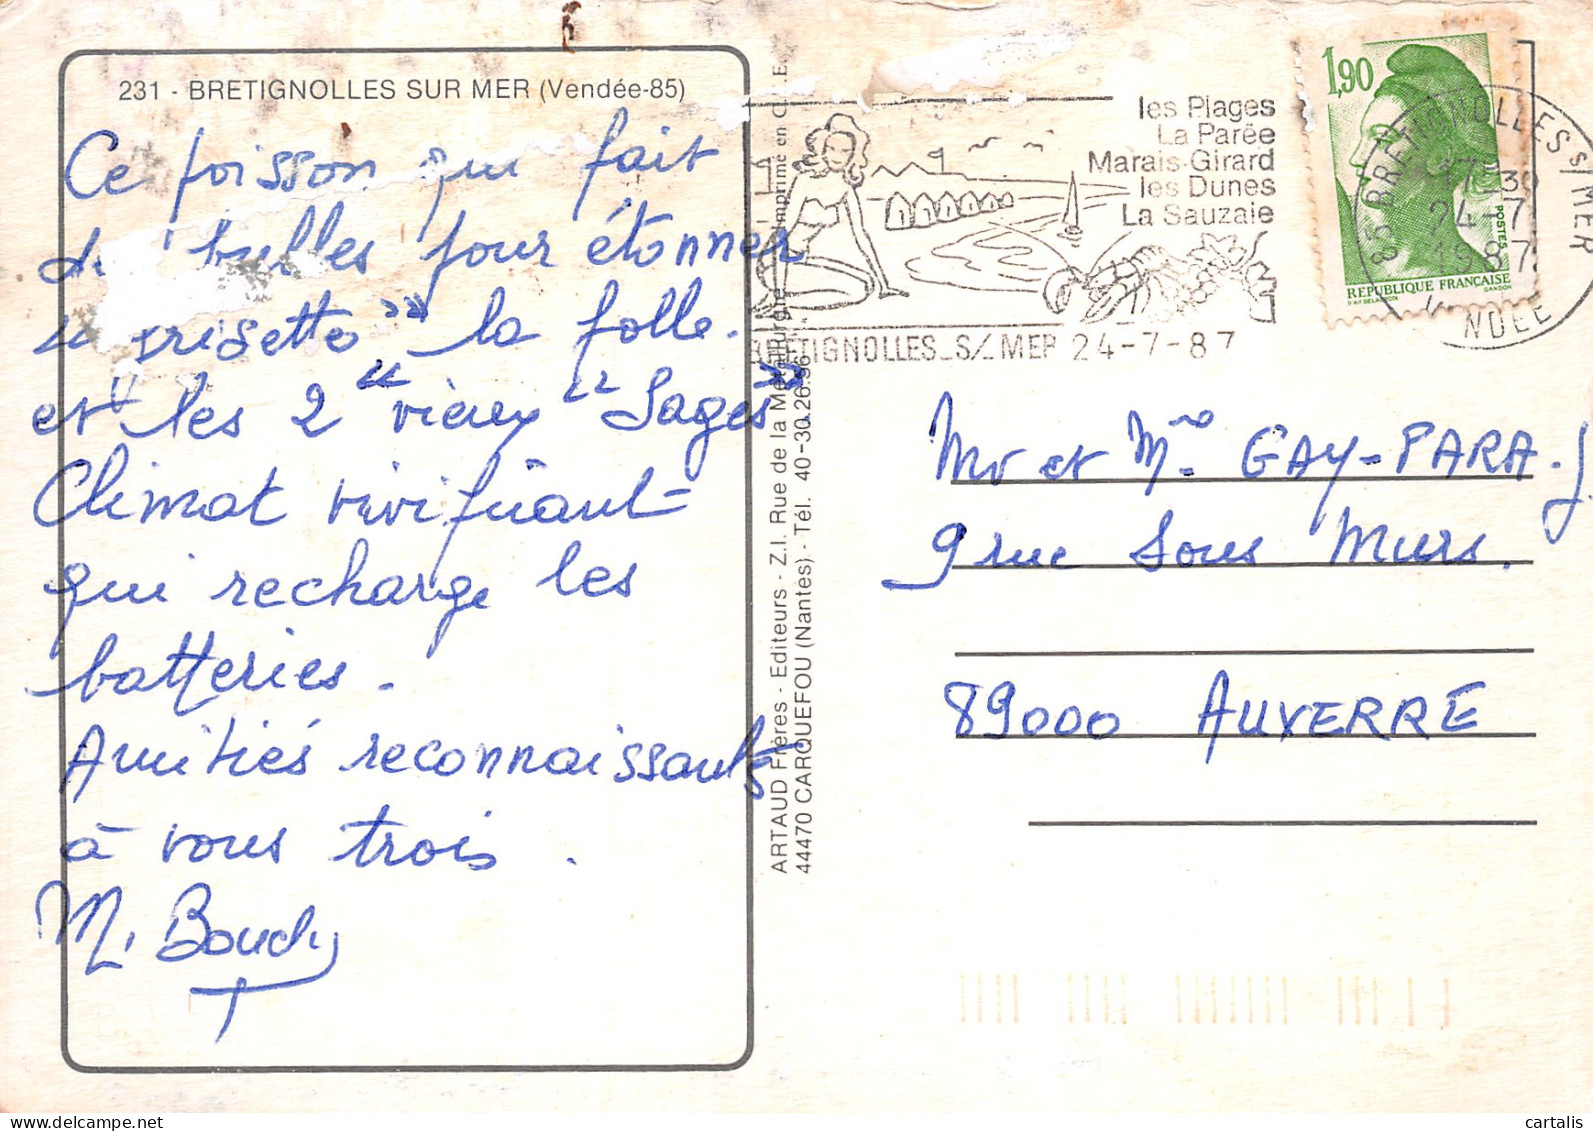 231 - BRETIGNOLLES SUR MER (Vendée-85)
Ce poisson qui fait
bulles pour étonner
"risette" la folle.
et les 2 "vieux" Sages"
Climat vivifiant
qui recharge les
batteries.
Amitiés reconnaissantes
à vous trois.
M. Bouchy
ARTAUD Frères - Editeurs - Z.I. Rue de la Métallurgie
44470 CARQUEFOU (Nantes) - Tél. 40-30.26.96
Imprimé en C.E.E.
les Plages
La Parée
Marais-Girard
les Dunes
La Sauzaie
BRETIGNOLLES S/ MER 24-7-87
1,90
POSTES
REPUBLIQUE FRANÇAISE
GANDON
85 BRETIGNOLLES S/MER
17-30
24-7
1987
VENDEE
Mr et Mme GAY-PARA. J
9 rue Sous Murs.
89000 AUXERRE
cartalis